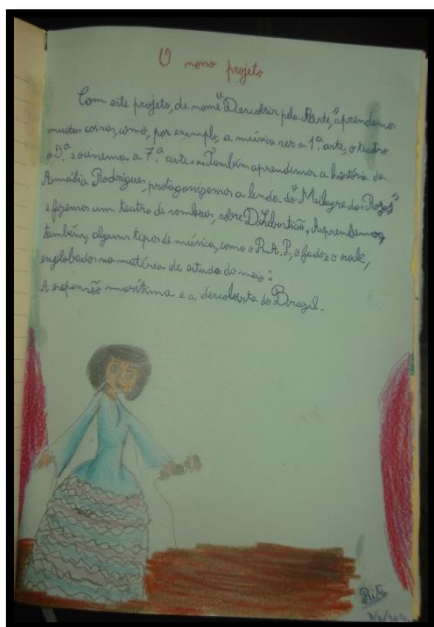 O nosso projeto
Com este projeto, de nome "Descobrir pela Arte," aprendemos
muitas coisas, como, por exemplo, a música ser a 1.ª arte, o teatro
a 5.ª e o cinema a 7.ª arte. Também aprendemos a história da
Amália Rodrigues, protagonizamos a lenda do "Milagre das Rosas"
e fizemos um teatro de sombras, sobre D. Sebastião. Aprendemos,
também, alguns tipos de música, como o R.A.P, o fado e o rock,
englobados na matéria de estudo do meio:
A expansão marítima e a descoberta do Brasil.
Rita